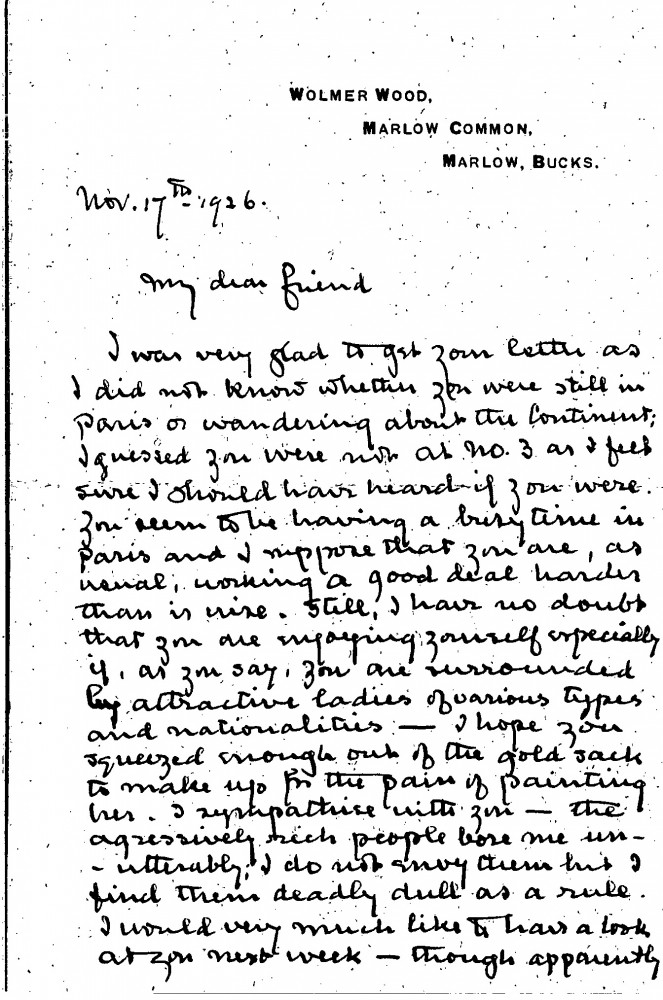 WOLMER WOOD,
MARLOW COMMON,
MARLOW, BUCKS.
Nov. 17TH 1926.
My dear friend
I was very glad to get your letter as
I did not know whether you were still in
Paris or wandering about the Continent;
I guessed you were not at No. 3 as I feel
sure I should have heard if you were.
You seem to be having a busy time in
Paris and I suppose that you are, as
usual, working a good deal harder
than is wise. Still, I have no doubt
that you are enjoying yourself especially
if, as you say, you are surrounded
by attractive ladies of various types
and nationalities — I hope you
squeezed enough out of the gold sack
to make up for the pain of painting
her. I sympathise with you — the
agressively rich people bore me un-
-utterably; I do not envy them but I
find them deadly dull as a rule.
I would very much like to have a look
at you next week — though apparently